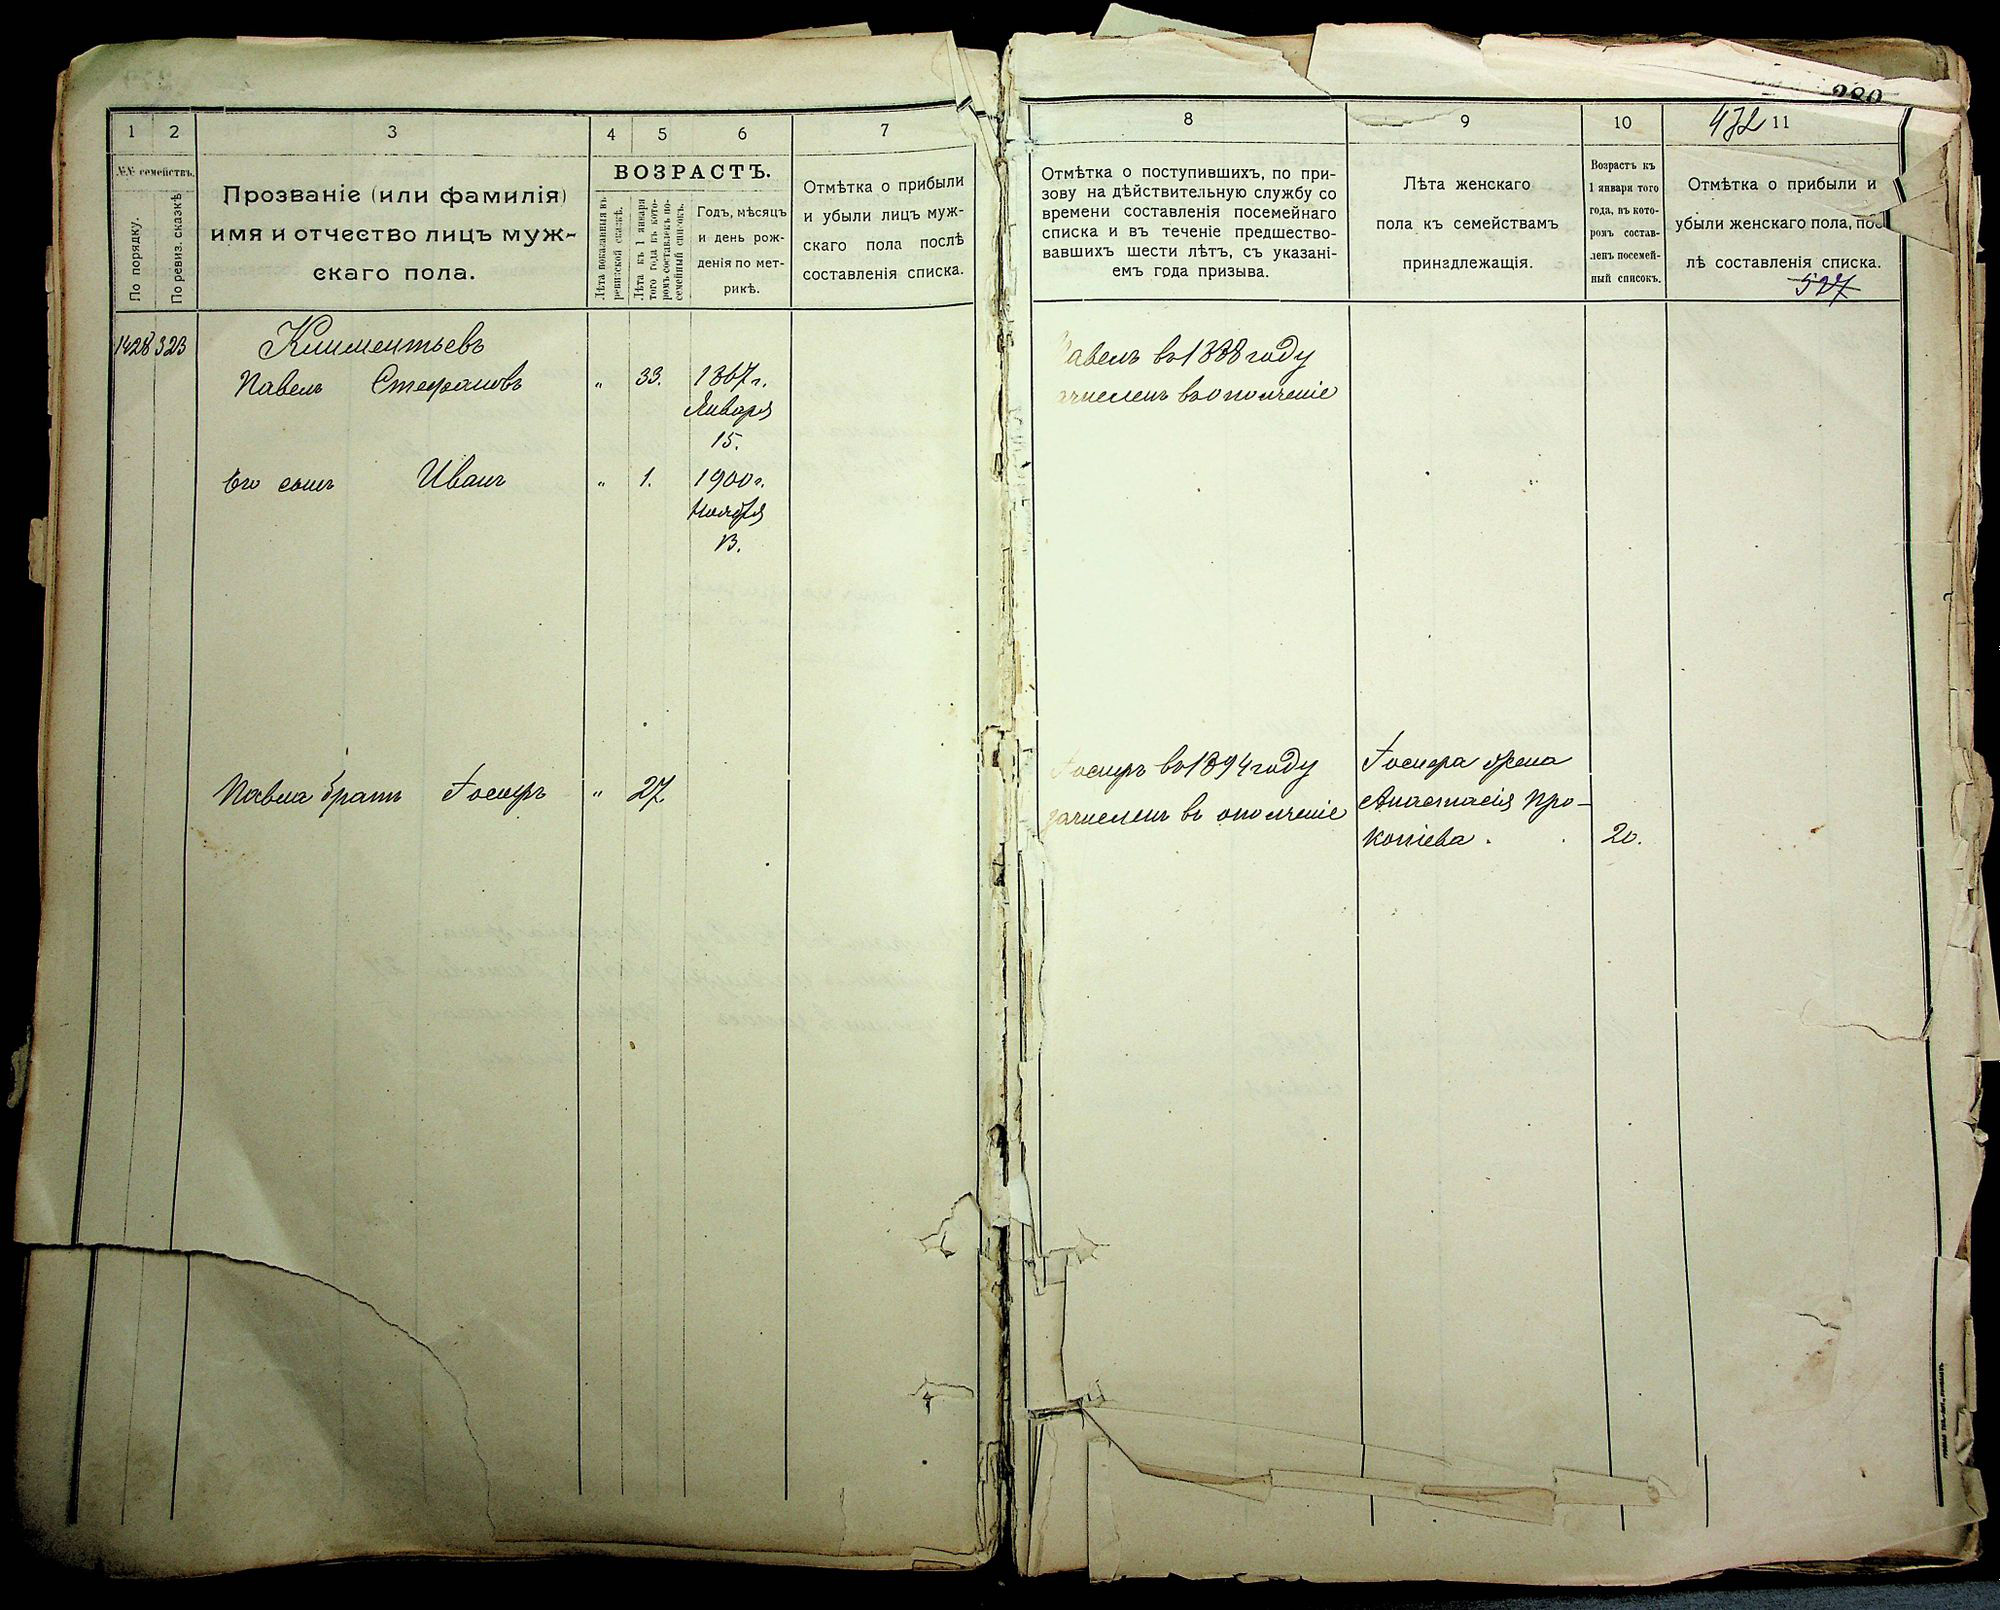 1
2
3
4
5
6
7
№№ семействъ.
По порядку.
По ревиз. сказкѣ
Прозваніе (или фамилія)
имя и отчество лицъ муж-
скаго пола.
ВОЗРАСТЪ.
Лѣта показанныя въ
ревизской сказкѣ.
Лѣта къ 1 января
того года въ кото-
ромъ составленъ по-
семейный списокъ.
Годъ, мѣсяцъ
и день рож-
денія по мет-
рикѣ.
Отмѣтка о прибыли
и убыли лицъ муж-
скаго пола послѣ
составленія списка.
1428 323 Климентьевъ
Павелъ Стефановъ „ 33. 1867 г.
Января
15.
Его сынъ Иванъ „ 1. 1900 г.
Ноября
13.
Павла братъ Іосифъ „ 27.
280
472
8
9
10
11
Отмѣтка о поступившихъ, по при-
зову на дѣйствительную службу со
времени составленія посемейнаго
списка и въ теченіе предшество-
вавшихъ шести лѣтъ, съ указані-
емъ года призыва.
Лѣта женскаго
пола къ семействамъ
принадлежащія.
Возрастъ къ
1 января того
года, въ кото-
ромъ состав-
ленъ посемей-
ный списокъ.
Отмѣтка о прибыли и
убыли женскаго пола, пос
лѣ составленія списка.
527
Павелъ въ 1888 году
зачисленъ въ ополченіе
Іосифъ въ 1894 году
зачисленъ въ ополченіе
Іосифа жена
Анастасія Про-
копіева. 20.